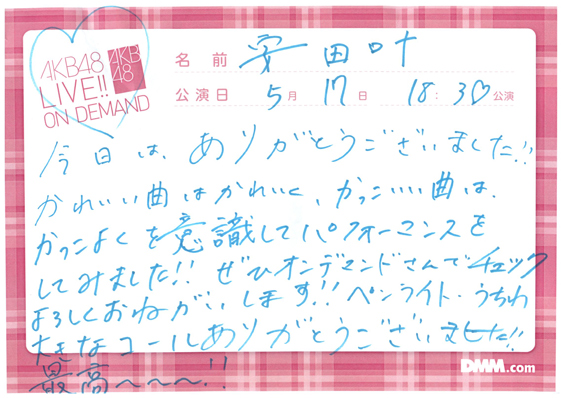 AKB48
LIVE!!
ON DEMAND
AKB
48
名前 安田叶
公演日 5月17日 18:30公演
今日は、ありがとうございました!!
かわいい曲はかわいく、かっこいい曲は、
かっこよくを意識してパフォーマンスを
してみました!! ぜひオンデマンドさんでチェック
よろしくおねがいします!! ペンライト・うちわ
大きなコールありがとうございました!!
最高〜〜〜!!
DMM.com